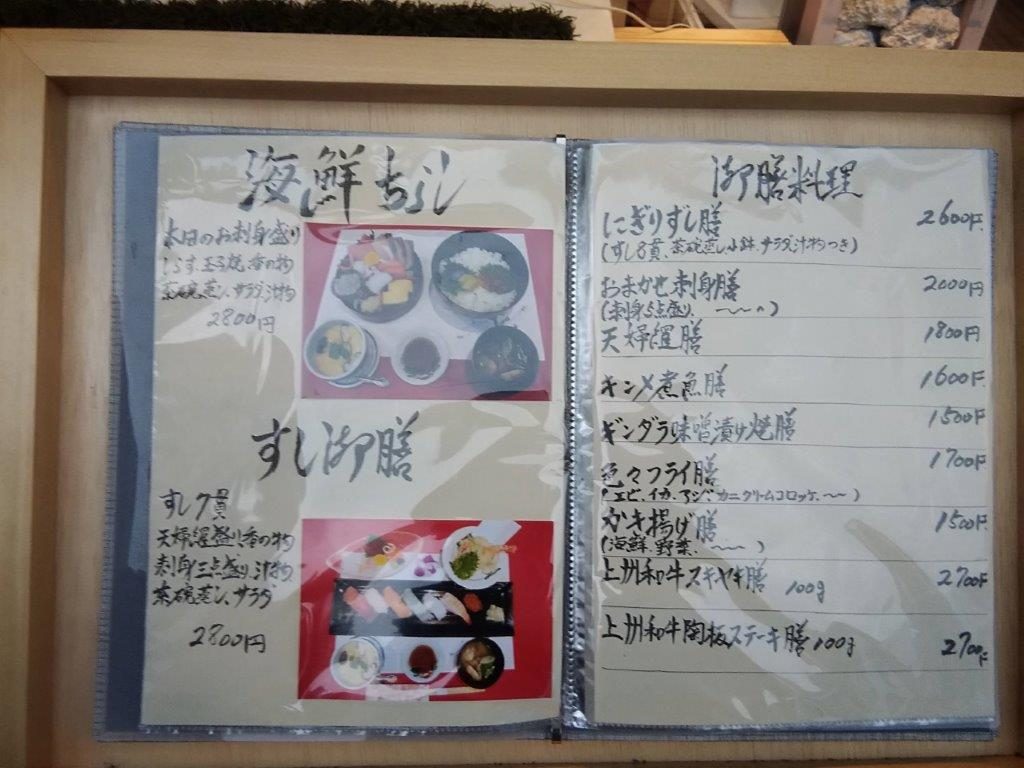 海鮮ちらし
本日のお刺身盛り
しらす、玉子焼、香の物
茶碗蒸し、サラダ、汁物
2800円
すし御膳
すし7貫
天婦羅盛り、香の物
刺身三点盛り、汁物
茶碗蒸し、サラダ
2800円
御膳料理
にぎりずし膳 2600円
(すし8貫、茶碗蒸し、小鉢、サラダ、汁物つき)
おまかせ刺身膳 2000円
(刺身5点盛り、 〜〜 〃)
天婦羅膳 1800円
キンメ煮魚膳 1600円
ギンダラ味噌漬け焼膳 1500円
色々フライ膳 1700円
(エビ、イカ、アジ、カニクリームコロッケ、〜〜)
かき揚げ膳 1500円
(海鮮、野菜、〜〜)
上州和牛スキヤキ膳 100g 2700円
上州和牛陶板ステーキ膳 100g 2700円